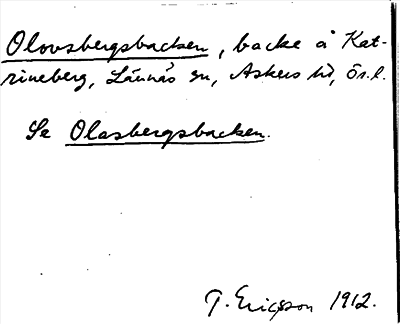 Olovsbergsbacken, backe å Kat-
rineberg, Lännäs sn, Askers hd, Ör.l.
Se Olasbergsbacken.
T. Ericsson 1912.